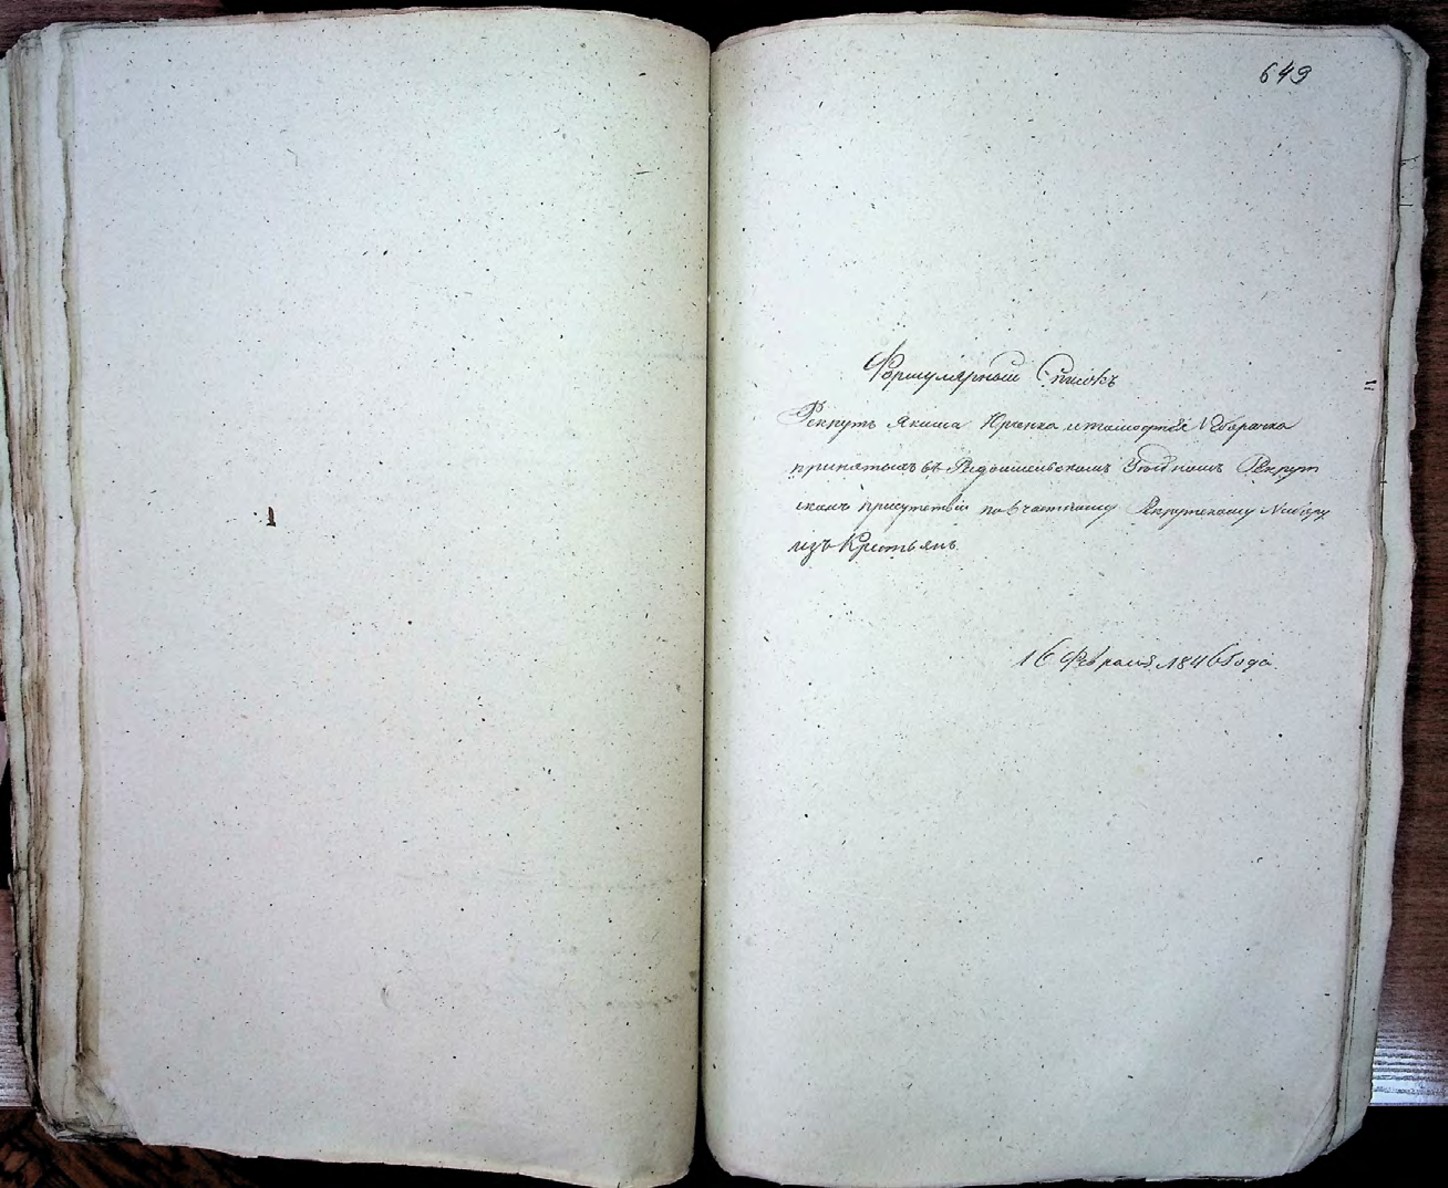 649
Формулярный Списокъ
Рекрутъ Якима Юрчика и Тимофея
принятыхъ въ Радомысльскомъ Уездномъ Рекрут
скомъ присутствіи по частному Рекрутскому Набору
изъ Крестьянъ
16 Февраля 1846 года.